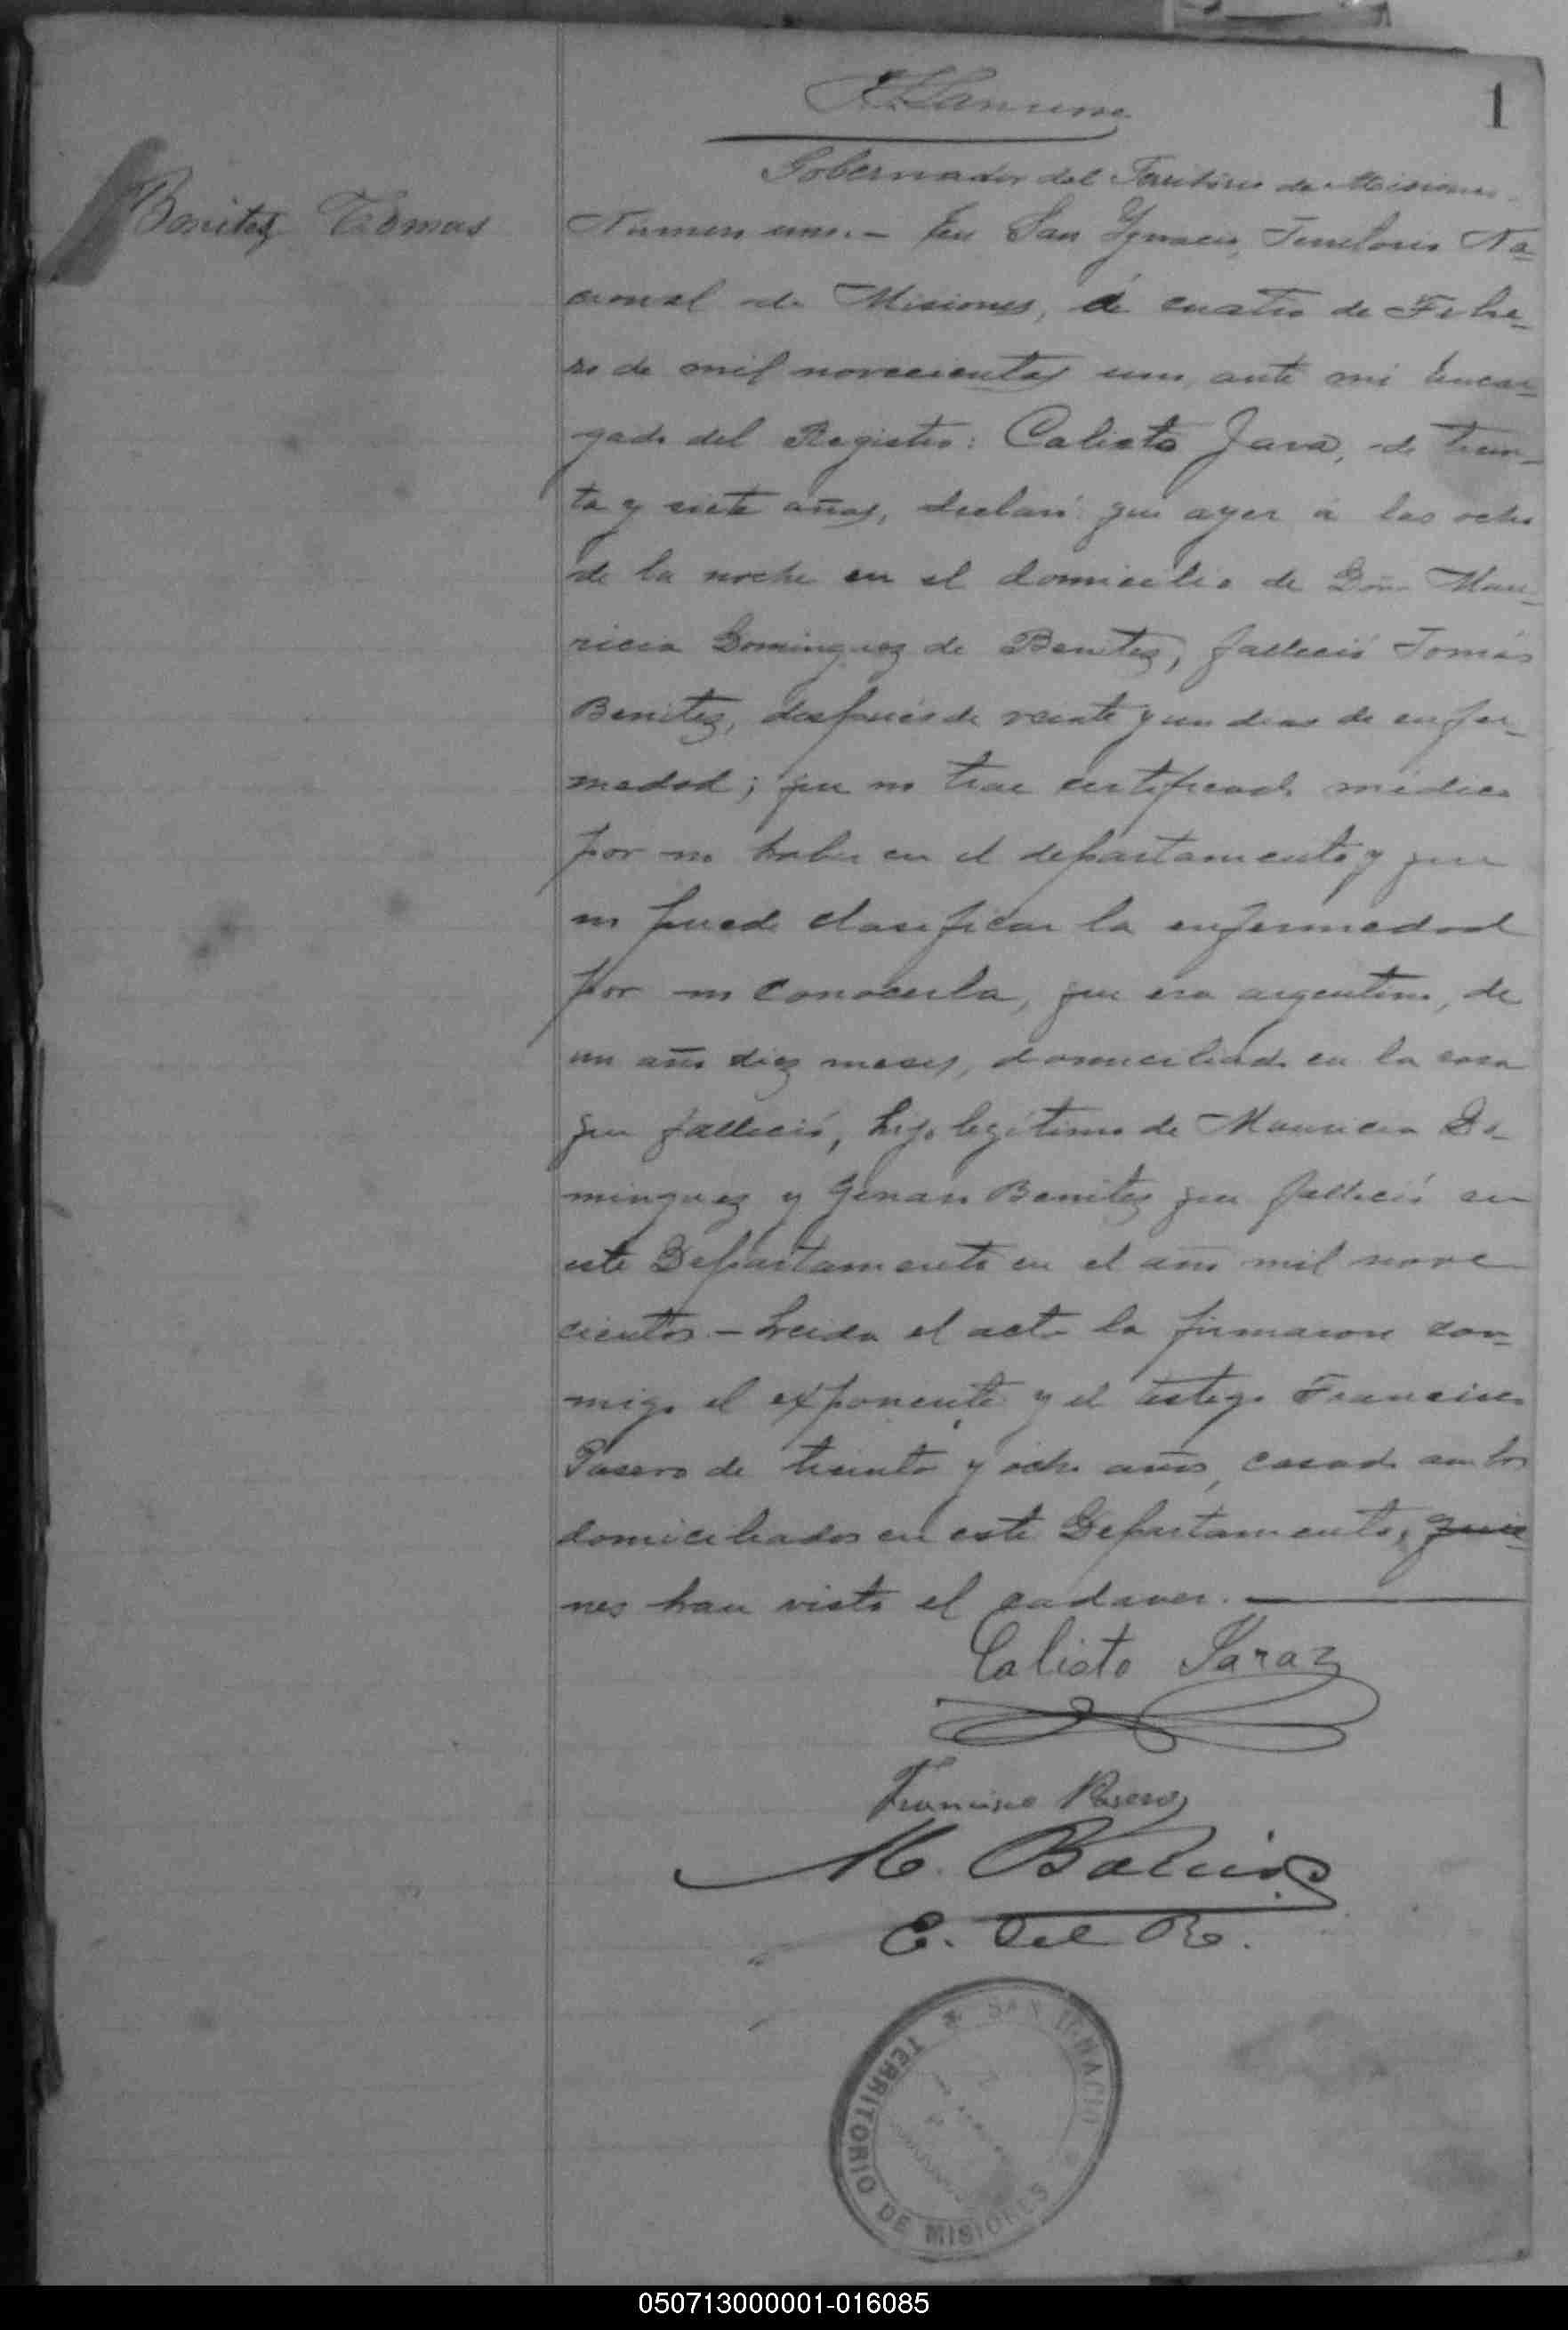 1
Gobernador del Territorio de Misiones
Benitez Tomas
Numero uno.- En San Ygnacio, Territorio Na-
cional de Misiones, á cuatro de Febre-
ro de mil novecientos uno, ante mi Encar-
gado del Registro: Calisto Jara, de trein-
ta y siete años, declaró: que ayer á las ocho
de la noche en el domicilio de Doña Mau-
ricia Dominguez de Benitez, falleció Tomás
Benitez, después de veinte y un dias de enfer-
medad; que no trae certificado médico
por no haber en el departamento y que
no puede clasificar la enfermedad
por no conocerla, que era argentino, de
un año diez meses, domiciliado en la casa
que falleció, hijo legítimo de Mauricia Do-
minguez y Genaro Benitez que falleció en
este Departamento en el año mil nove
cientos.- Leida el acta la firmaron con-
migo el exponente y el testigo Francisco
Pasero de treinta y ocho años, casado ambos
domiciliados en este Departamento, quie-
nes han visto el cadaver.
Calisto Jaraz
Francisco Pasero
M.
E. del R.
SAN IGNACIO
TERRITORIO DE MISIONES
050713000001-016085